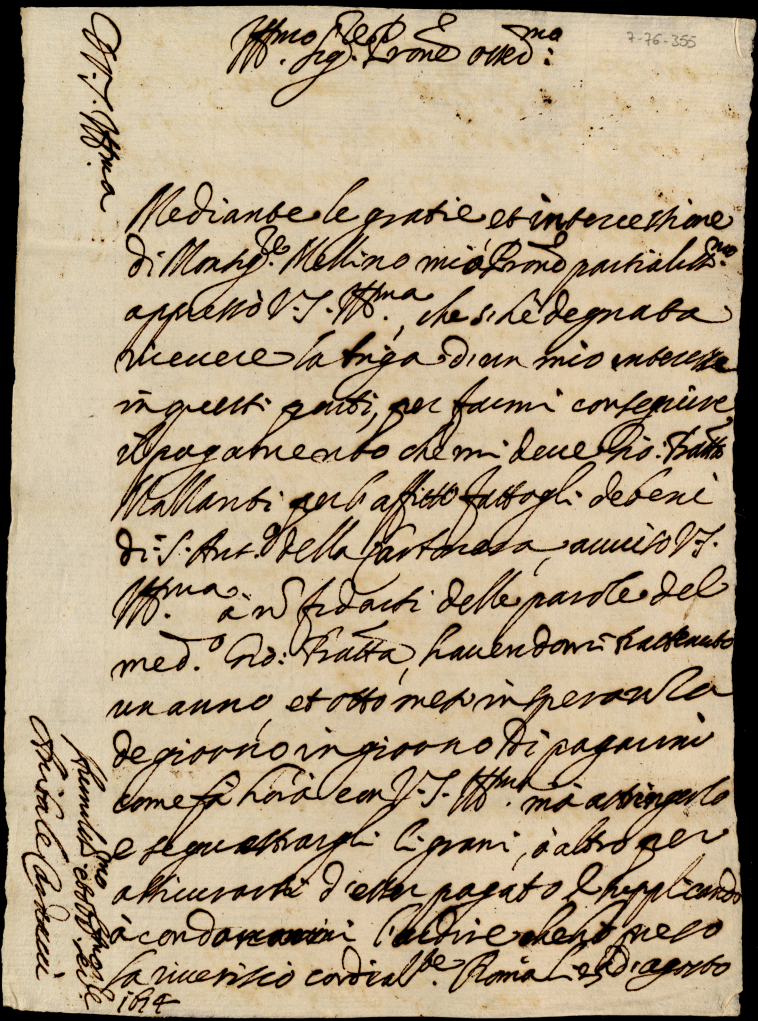 7-76-355
Ill.mo Sig.re P.rone osser.mo
Mediante le gratie et intercessione
di Monsig.re Mellino mio P.rone partialiss.mo
appresso V. S. Ill.ma, che si è degnata
ricevere la briga di un mio interesse
in questi parti, per farmi conseguire
il pagamento che mi deve Gio: Batta
Mallanti per l'affitto fattogli de beni
di S. Ant.o della, avviso V. S.
Ill.ma à nō fidarsi delle parole del
med.o Gio: Batta, havendomi trattenuto
un anno, et otto mesi in speranza
de giorno in giorno di pagarmi
come fà horà con V. S. Ill.ma mà astringerlo
e sequestrargli li grani, ò altro per
assicurarsi d'esser pagato, e supplicando
à condonarmi l'ardire che hò preso
la riverisco cordialm.te Roma li d'agosto
1614
Di V. S. Ill.ma
Humiliss.mo et ser.re
Anibale